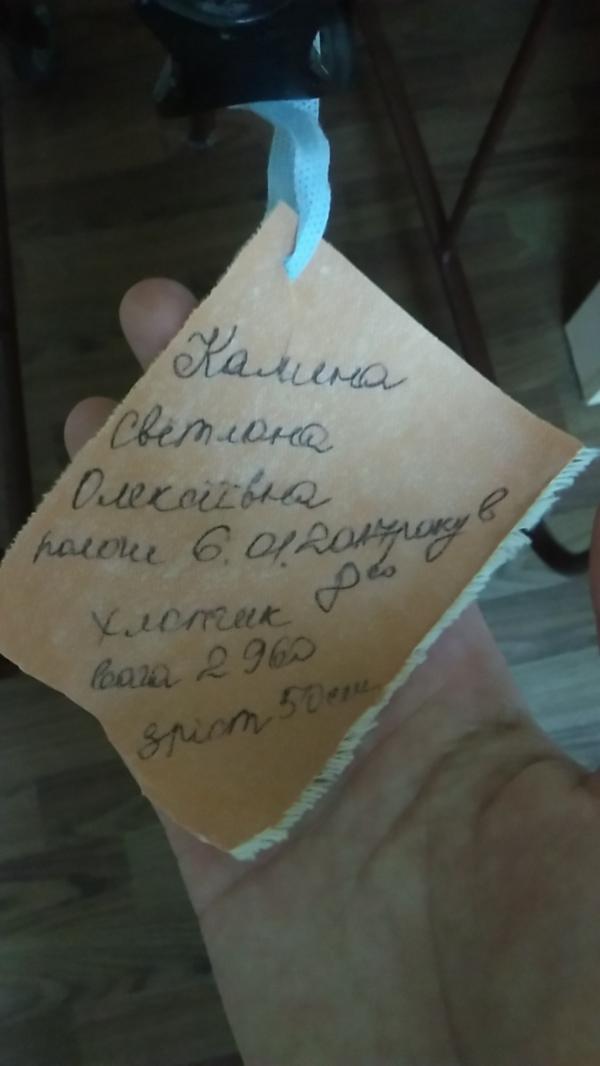 Калина
Светлана
Олексіївна
пологи 6.01.2017року в
8⁰⁰
хлопчик
вага 2960
зріст 50см.